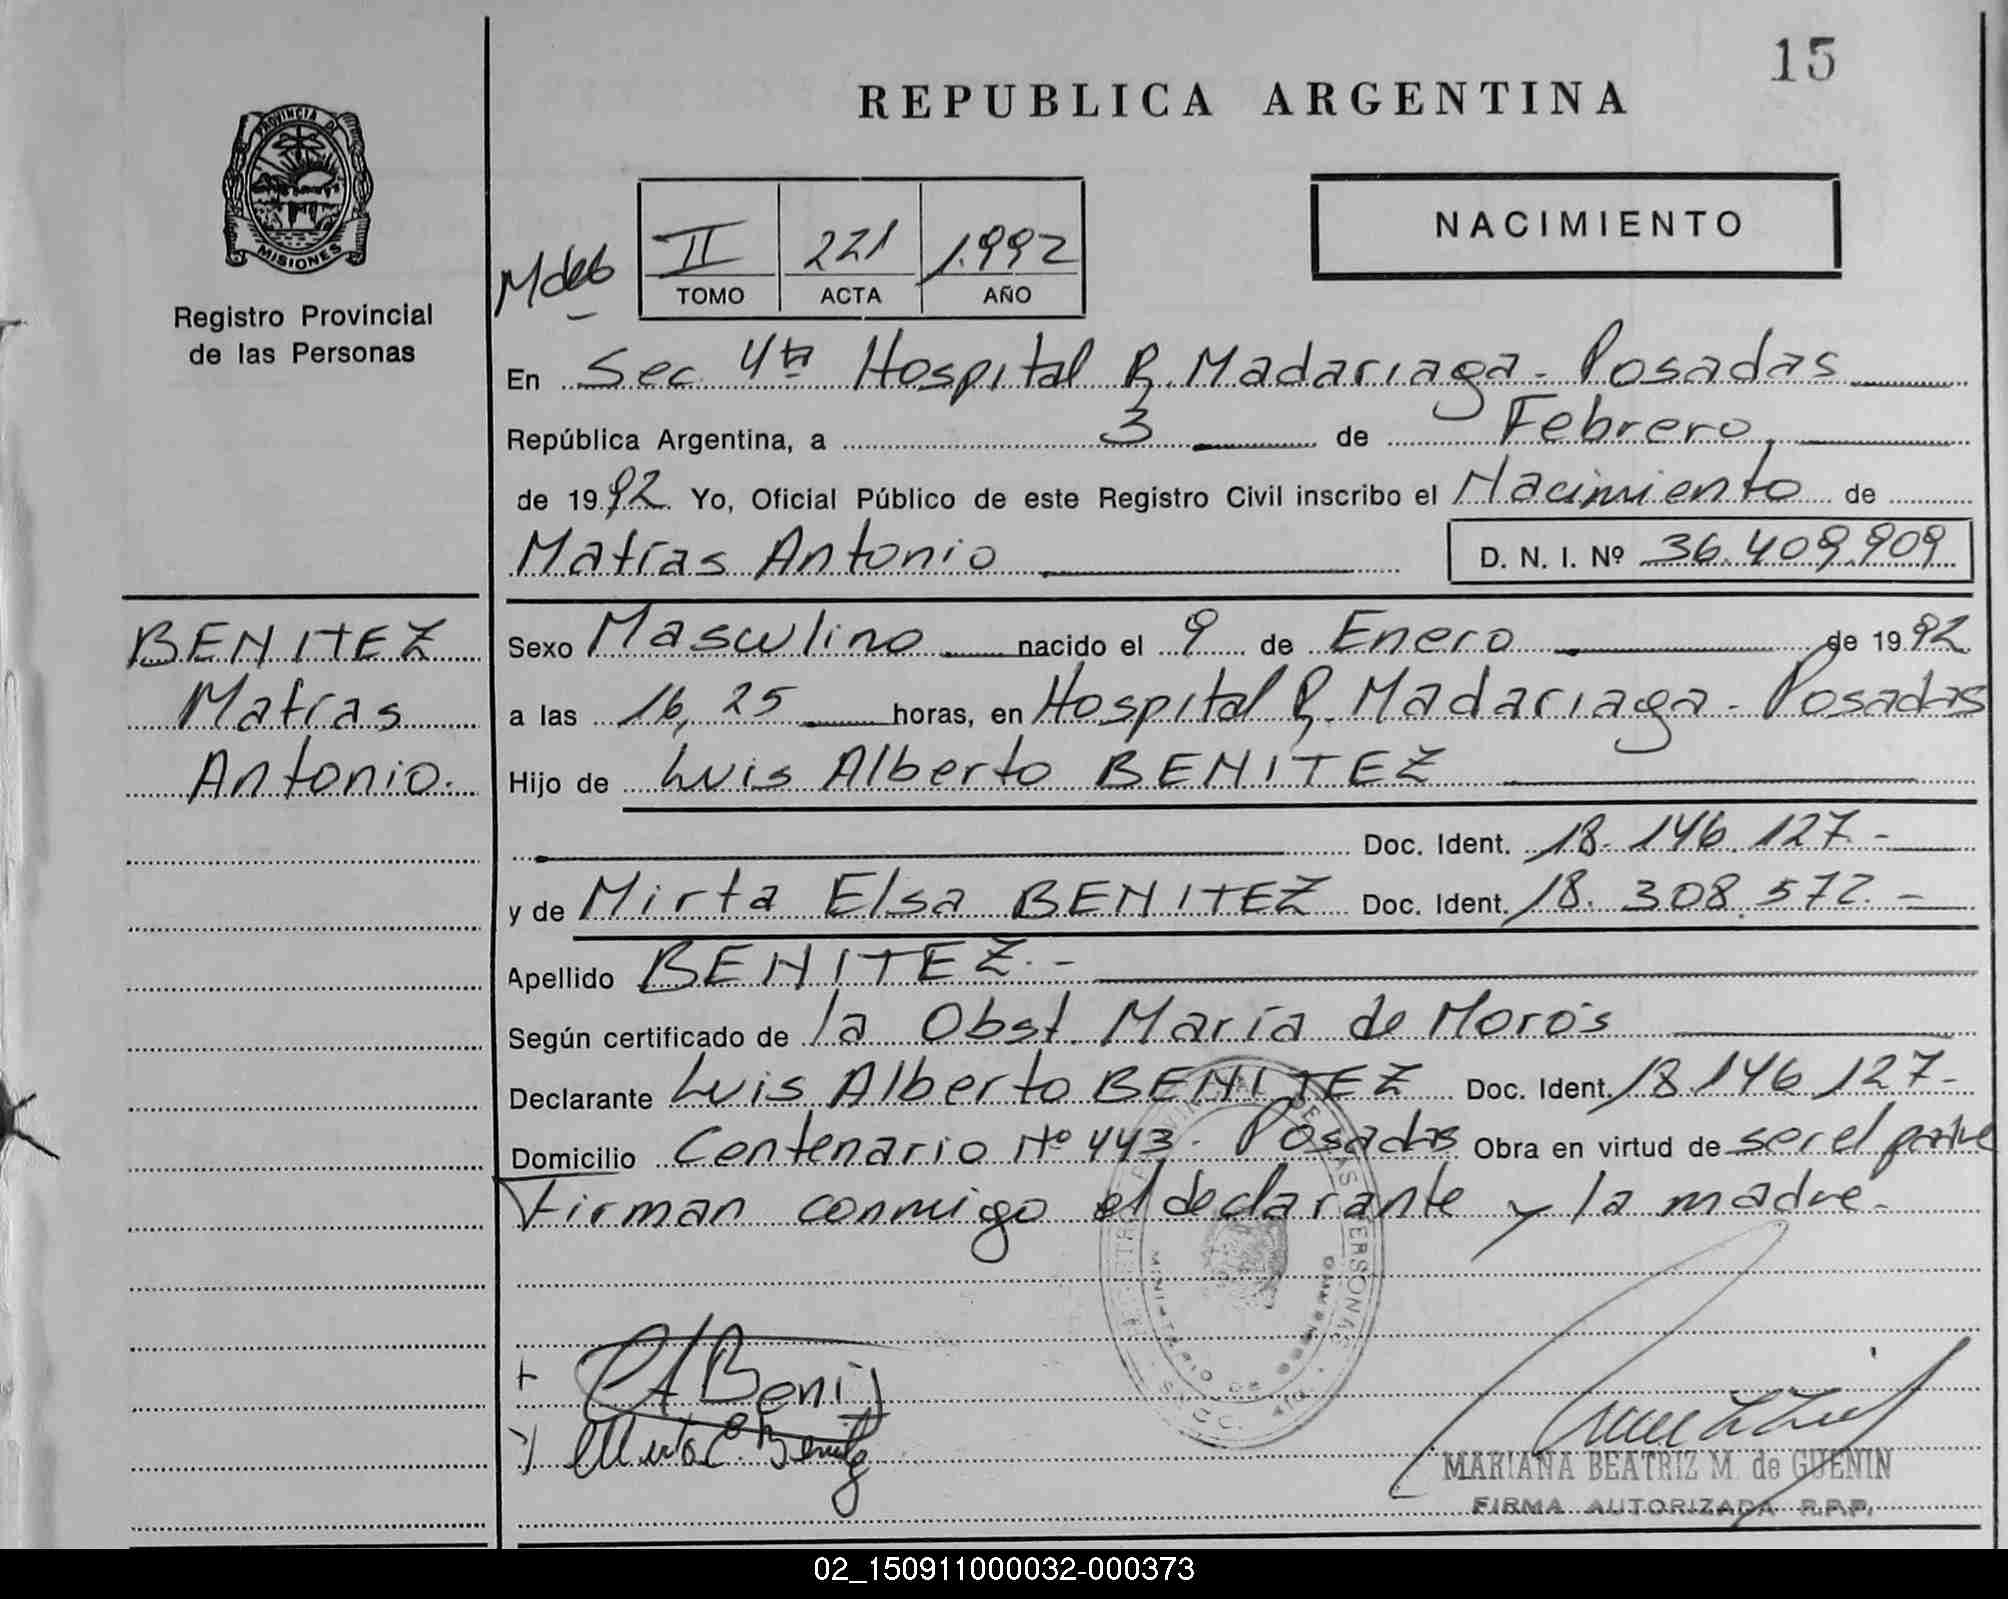 15
REPUBLICA ARGENTINA
PROVINCIA DE
MISIONES
Registro Provincial
de las Personas
II 221 1.992
TOMO ACTA AÑO
NACIMIENTO
En Sec. 4ta Hospital R. Madariaga - Posadas
República Argentina, a 3 de Febrero
de 1992 Yo, Oficial Público de este Registro Civil inscribo el Nacimiento de
Matías Antonio D. N. I. Nº 36.409.909
BENITEZ
Matías
Antonio.
Sexo Masculino nacido el 9 de Enero de 1992
a las 16,25 horas, en Hospital R. Madariaga - Posadas
Hijo de Luis Alberto BENITEZ
Doc. Ident. 18.146.127.-
y de Mirta Elsa BENITEZ Doc. Ident. 18.308.572.-
Apellido BENITEZ.-
Según certificado de la Obst. María de Moros
Declarante Luis Alberto BENITEZ Doc. Ident. 18.146.127-
Domicilio Centenario Nº 443. Posadas Obra en virtud de ser el padre
Firman conmigo el declarante y la madre.
LABeni
Mirta E. Benitez
MARIANA BEATRIZ M. de GUENIN
FIRMA AUTORIZADA R.P.P.
02_150911000032-000373